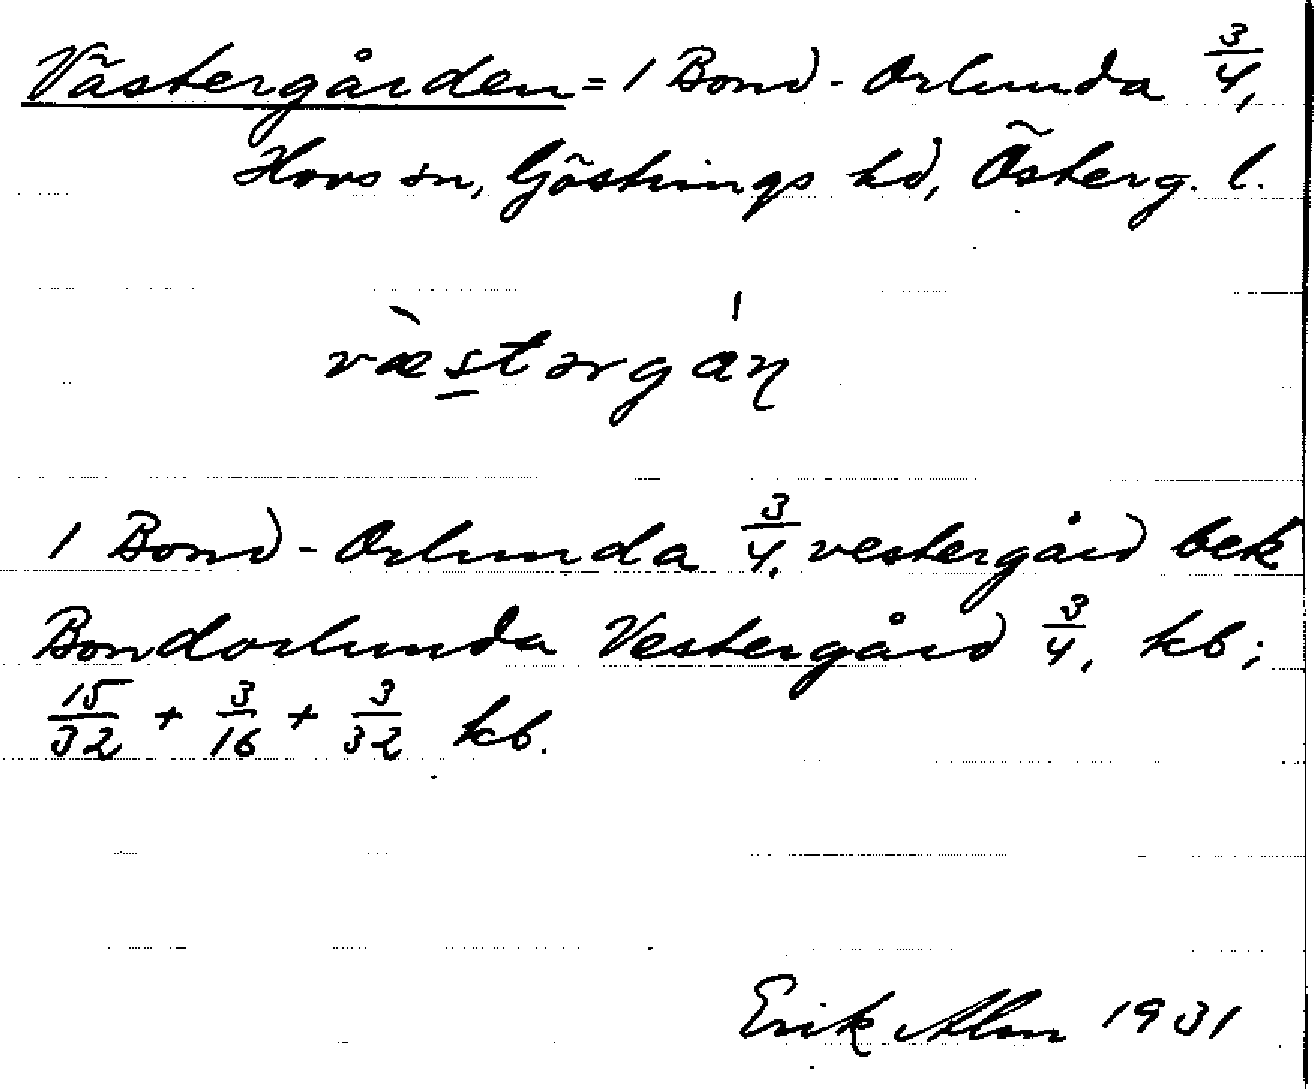 Västergården = 1 Bond-Orlunda 3/4,
Hovs sn, Göstrings hd, Österg. l.
væ̀stərgáɳ
1 Bond-Orlunda 3/4, vestergård bek
Bondorlunda Vestergård 3/4, kb;
15/32 + 3/16 + 3/32 kb.
Erik Alm 1931